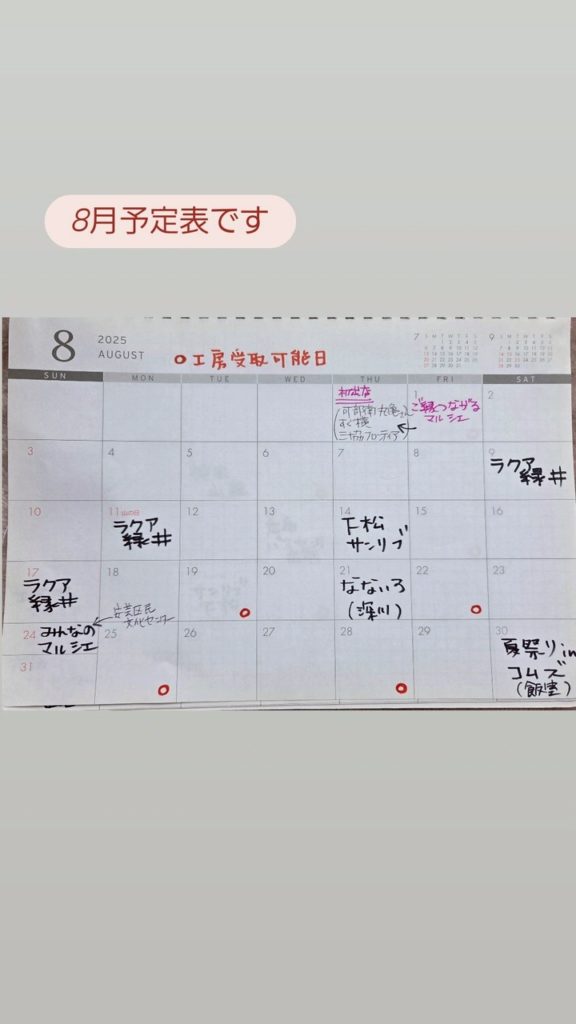 8月予定表です
8
2025
AUGUST
○工房受取可能日
7
9
SUN
MON
TUE
WED
THU
FRI
SAT
初出店
すぐ横
1
ご縁つながる
マルシェ
2
3
4
5
6
7
8
9
ラクア
緑井
10
11 山の日
ラクア
緑井
12
13
14
下松
サンリブ
15
16
17
ラクア
緑井
18
19
20
21
なないろ
(深川)
22
23
24
みんなの
マルシェ
安芸区民
文化センター
25
26
27
28
29
30
夏祭りin
コムズ
(飯室)
31